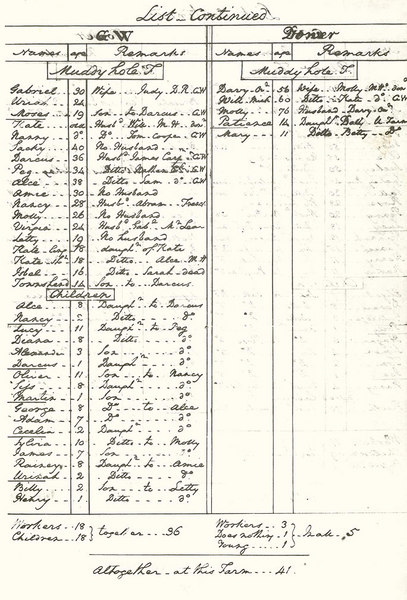 List Continued
G W
Names age Remarks
Muddy hole F.
Gabriel 30 Wife Judy D.R. GW
Uriah 24
Moses 19 Son to Darcus GW
Kate old Husbd Will M.H.
Nanny Do Tom Cooper GW
Sacky 40 No Husband
Darcus 36 Husbd James Carpr GW
Peg 34 Ditto GW
Alce 38 Ditto Sam do GW
Amie 30 No Husband
Nancy 28 Husbd Abram
Molly 26 No Husband
Virgin 24 Husbd Gabl Mr Lear
Letty 19 No husband
Kate 18 daughr of Kate
Kate 18 Ditto Alce M H
Isbel 16 Ditto Sarah dead
Townshend 14 Son to Darcus
Children
Alce 8 Daughr to Darcus
Nancy 2 Ditto do
Lucy 11 Daughr to Peg
Diana 8 Ditto do
Alexander 3 Son do
Darcus 1 Daughr do
Oliver 11 Son to Nancy
Siss 8 Daughr do
Martin 1 Son do
George 8 Do to Alce
Adam 7 Do do
Cecelia 2 Daughr do
Sylvia 10 Ditto to Molly
James 7 Son do
Rainey 8 Daughr to Amie
Urinah 2 Ditto do
Billy 2 Son to Letty
Henry 1 Ditto do
Workers 18
Children 18 together 36
Dower
Names age Remarks
Muddy hole F.
Davy Or 56 Wife Molly M.H.
Will 60 Ditto Kate do GW
Molly 76 Husband Davy Or
Patience 14 Daughr Doll
Mary 11 Ditto Betty Do
Workers 3
Does nothing 1
Young 1 In all 5
Altogether at this Farm 41.